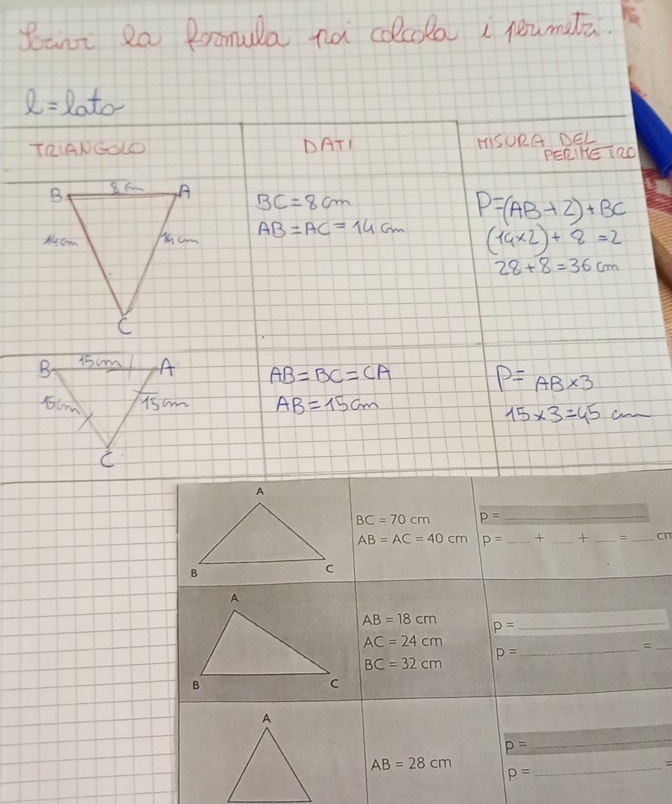 Scrivi la formula poi calcola i perimetri.
l = lato
TRIANGOLO DATI MISURA DEL PERIMETRO
B 8 cm A
14 cm 14 cm
C
BC = 8 cm
AB = AC = 14 cm
P=(AB+2)+BC
(14×2)+8=2
28+8=36 cm
B 15cm A
15cm 15cm
C
AB=BC=CA
AB=15cm
P= AB×3
15×3=45 cm
A
B C
BC = 70 cm
AB = AC = 40 cm
p = ___
p = ___ + ___ + ___ = ___ cm
A
B C
AB = 18 cm
AC = 24 cm
BC = 32 cm
p = ___
p = ___ = ___
A
AB = 28 cm
p = ___
p = ___ =